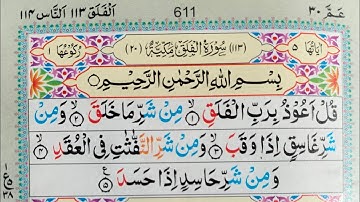 عَمَّ ٣٠ 611 اَلْفَلَق ١١٣ اَلنَّاس ١١٤
اٰيَاتُهَا ٥ (١١٣) سُوْرَةُ الْفَلَقِ مَكِّيَّةٌ (٢٠) رُكُوْعُهَا ١
بِسْمِ اللّٰهِ الرَّحْمٰنِ الرَّحِيْمِ
قُلْ اَعُوْذُ بِرَبِّ الْفَلَقِ ١ مِنْ شَرِّ مَا خَلَقَ ٢ وَمِنْ
شَرِّ غَاسِقٍ اِذَا وَقَبَ ٣ وَمِنْ شَرِّ النَّفّٰثٰتِ فِى الْعُقَدِ ٤
وَمِنْ شَرِّ حَاسِدٍ اِذَا حَسَدَ ٥
ع
١
٥
٣٨